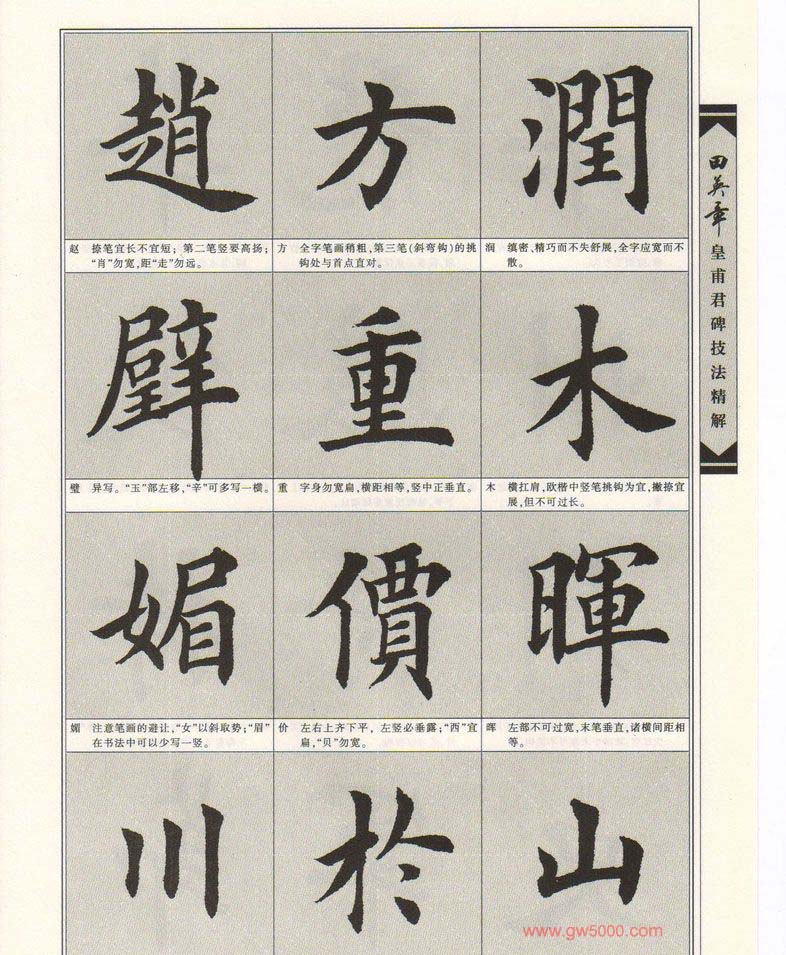 趙 方 潤
赵 捺笔宜长不宜短；第二笔竖要高扬；
“肖”勿宽，距“走”勿远。
方 全字笔画稍粗，第三笔(斜弯钩)的挑
钩处与首点直对。
润 缜密、精巧而不失舒展，全字应宽而不
散。
璧 重 木
璧 异写。“玉”部左移，“辛”可多写一横。
重 字身勿宽扁，横距相等，竖中正垂直。
木 横扛肩，欧楷中竖笔挑钩为宜，撇捺宜
展，但不可过长。
媚 價 暉
媚 注意笔画的避让，“女”以斜取势；“眉”
在书法中可以少写一竖。
价 左右上齐下平，左竖必垂露；“西”宜
扁，“贝”勿宽。
晖 左部不可过宽，末笔垂直，诸横间距相
等。
川 於 山
田英章皇甫君碑技法精解
www.gw5000.com